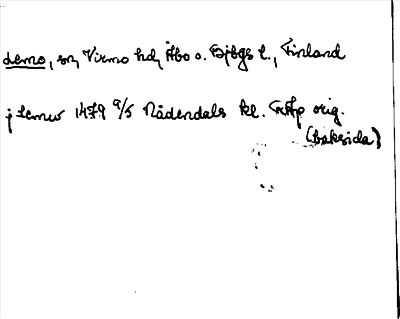 Lemo, sn, Virmo hd, Åbo o. Bjbgs l., Finland
j Lemw 1479 9/5 Nådendals kl. FRAp orig.
(baksida)